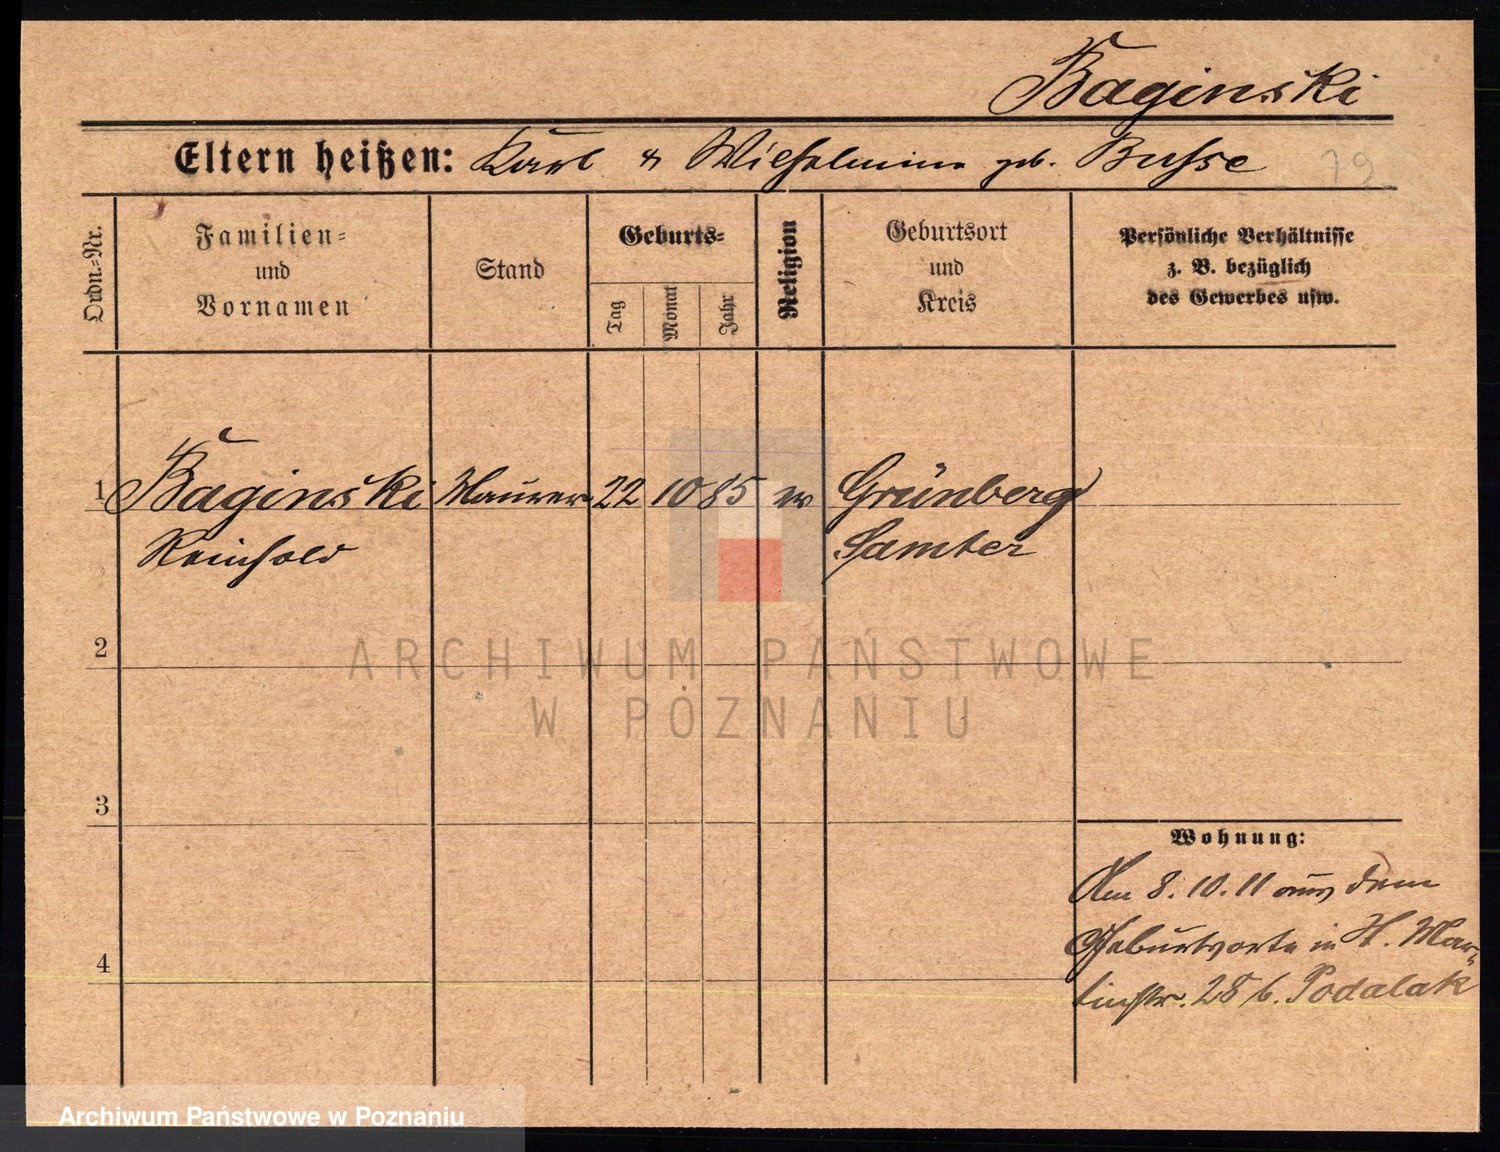 Baginski
Eltern heißen: Karl & Wilhelmine geb. Busse
79
Ordn.-Nr.
Familien-
und
Vornamen
Stand
Geburts-
Tag
Monat
Jahr
Religion
Geburtsort
und
Kreis
Persönliche Verhältnisse
z. B. bezüglich
des Gewerbes usw.
1 Baginski Maurer 22 10 85 ev Grünberg
Reinhold Samter
2
3
4
Wohnung:
Am 8. 10. 11 aus dem
Geburtsorte in St. Mar-
tinstr. 28 b. Podalak
ARCHIWUM PAŃSTWOWE
W POZNANIU
Archiwum Państwowe w Poznaniu